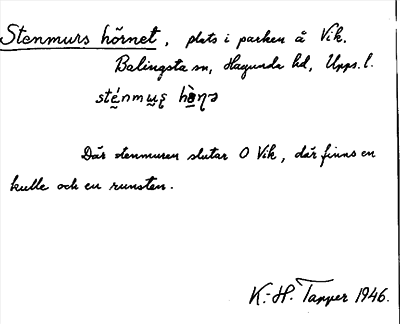 Stenmurs hörnet, plats i parken å Vik.
Balingsta sn, Hagunda hd, Upps. l.
Där stenmuren slutar O Vik, där finns en
kulle och en runsten.
K.-H. Tapper 1946.